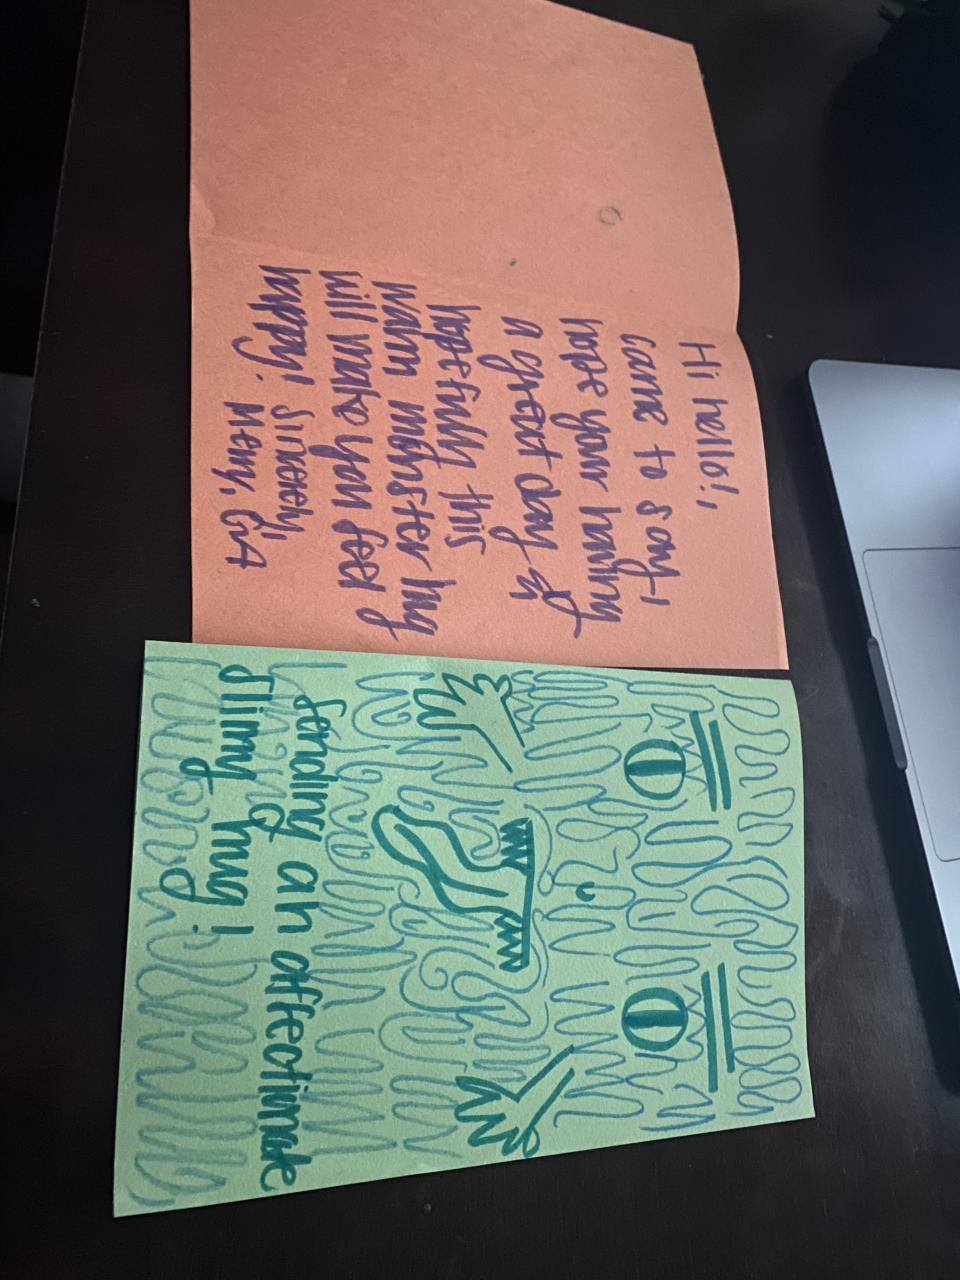 Hi hello!,
came to say, I
hope your having
a great day &
hopefully this
warm monster hug
will make you feel
happy! Sincerely,
Meny, G.A
Sending an affectionate
slimy hug!